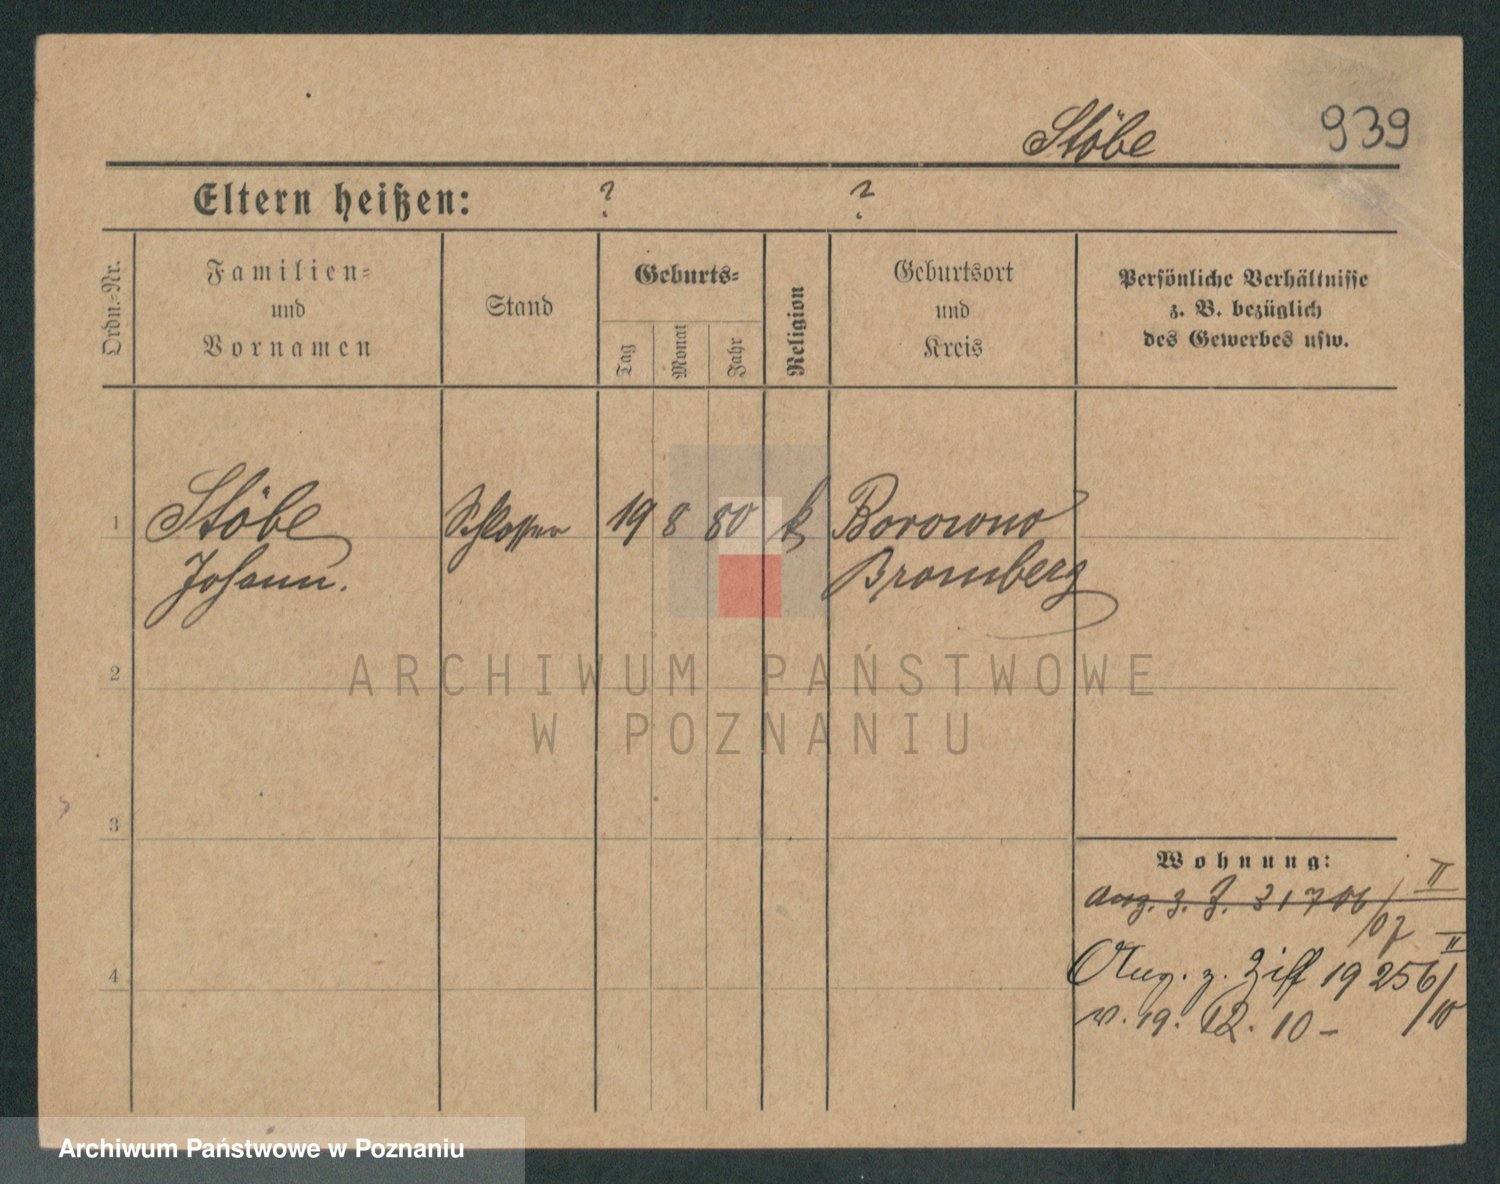 Stöbe 939
Eltern heißen: ? ?
Ordn.-Nr.
Familien-
und
Vornamen
Stand
Geburts-
Tag
Monat
Jahr
Religion
Geburtsort
und
Kreis
Persönliche Verhältnisse
z. B. bezüglich
des Gewerbes usw.
1 Stöbe Schlosser 19 8 80 k Borowno
Johann. Bromberg
2
ARCHIWUM PAŃSTWOWE
W POZNANIU
3
Wohnung:
Ang. z. J. 31706/07 II
Ang. z. Ziff 19256/10 II
v. 19. 12. 10 -
4
Archiwum Państwowe w Poznaniu